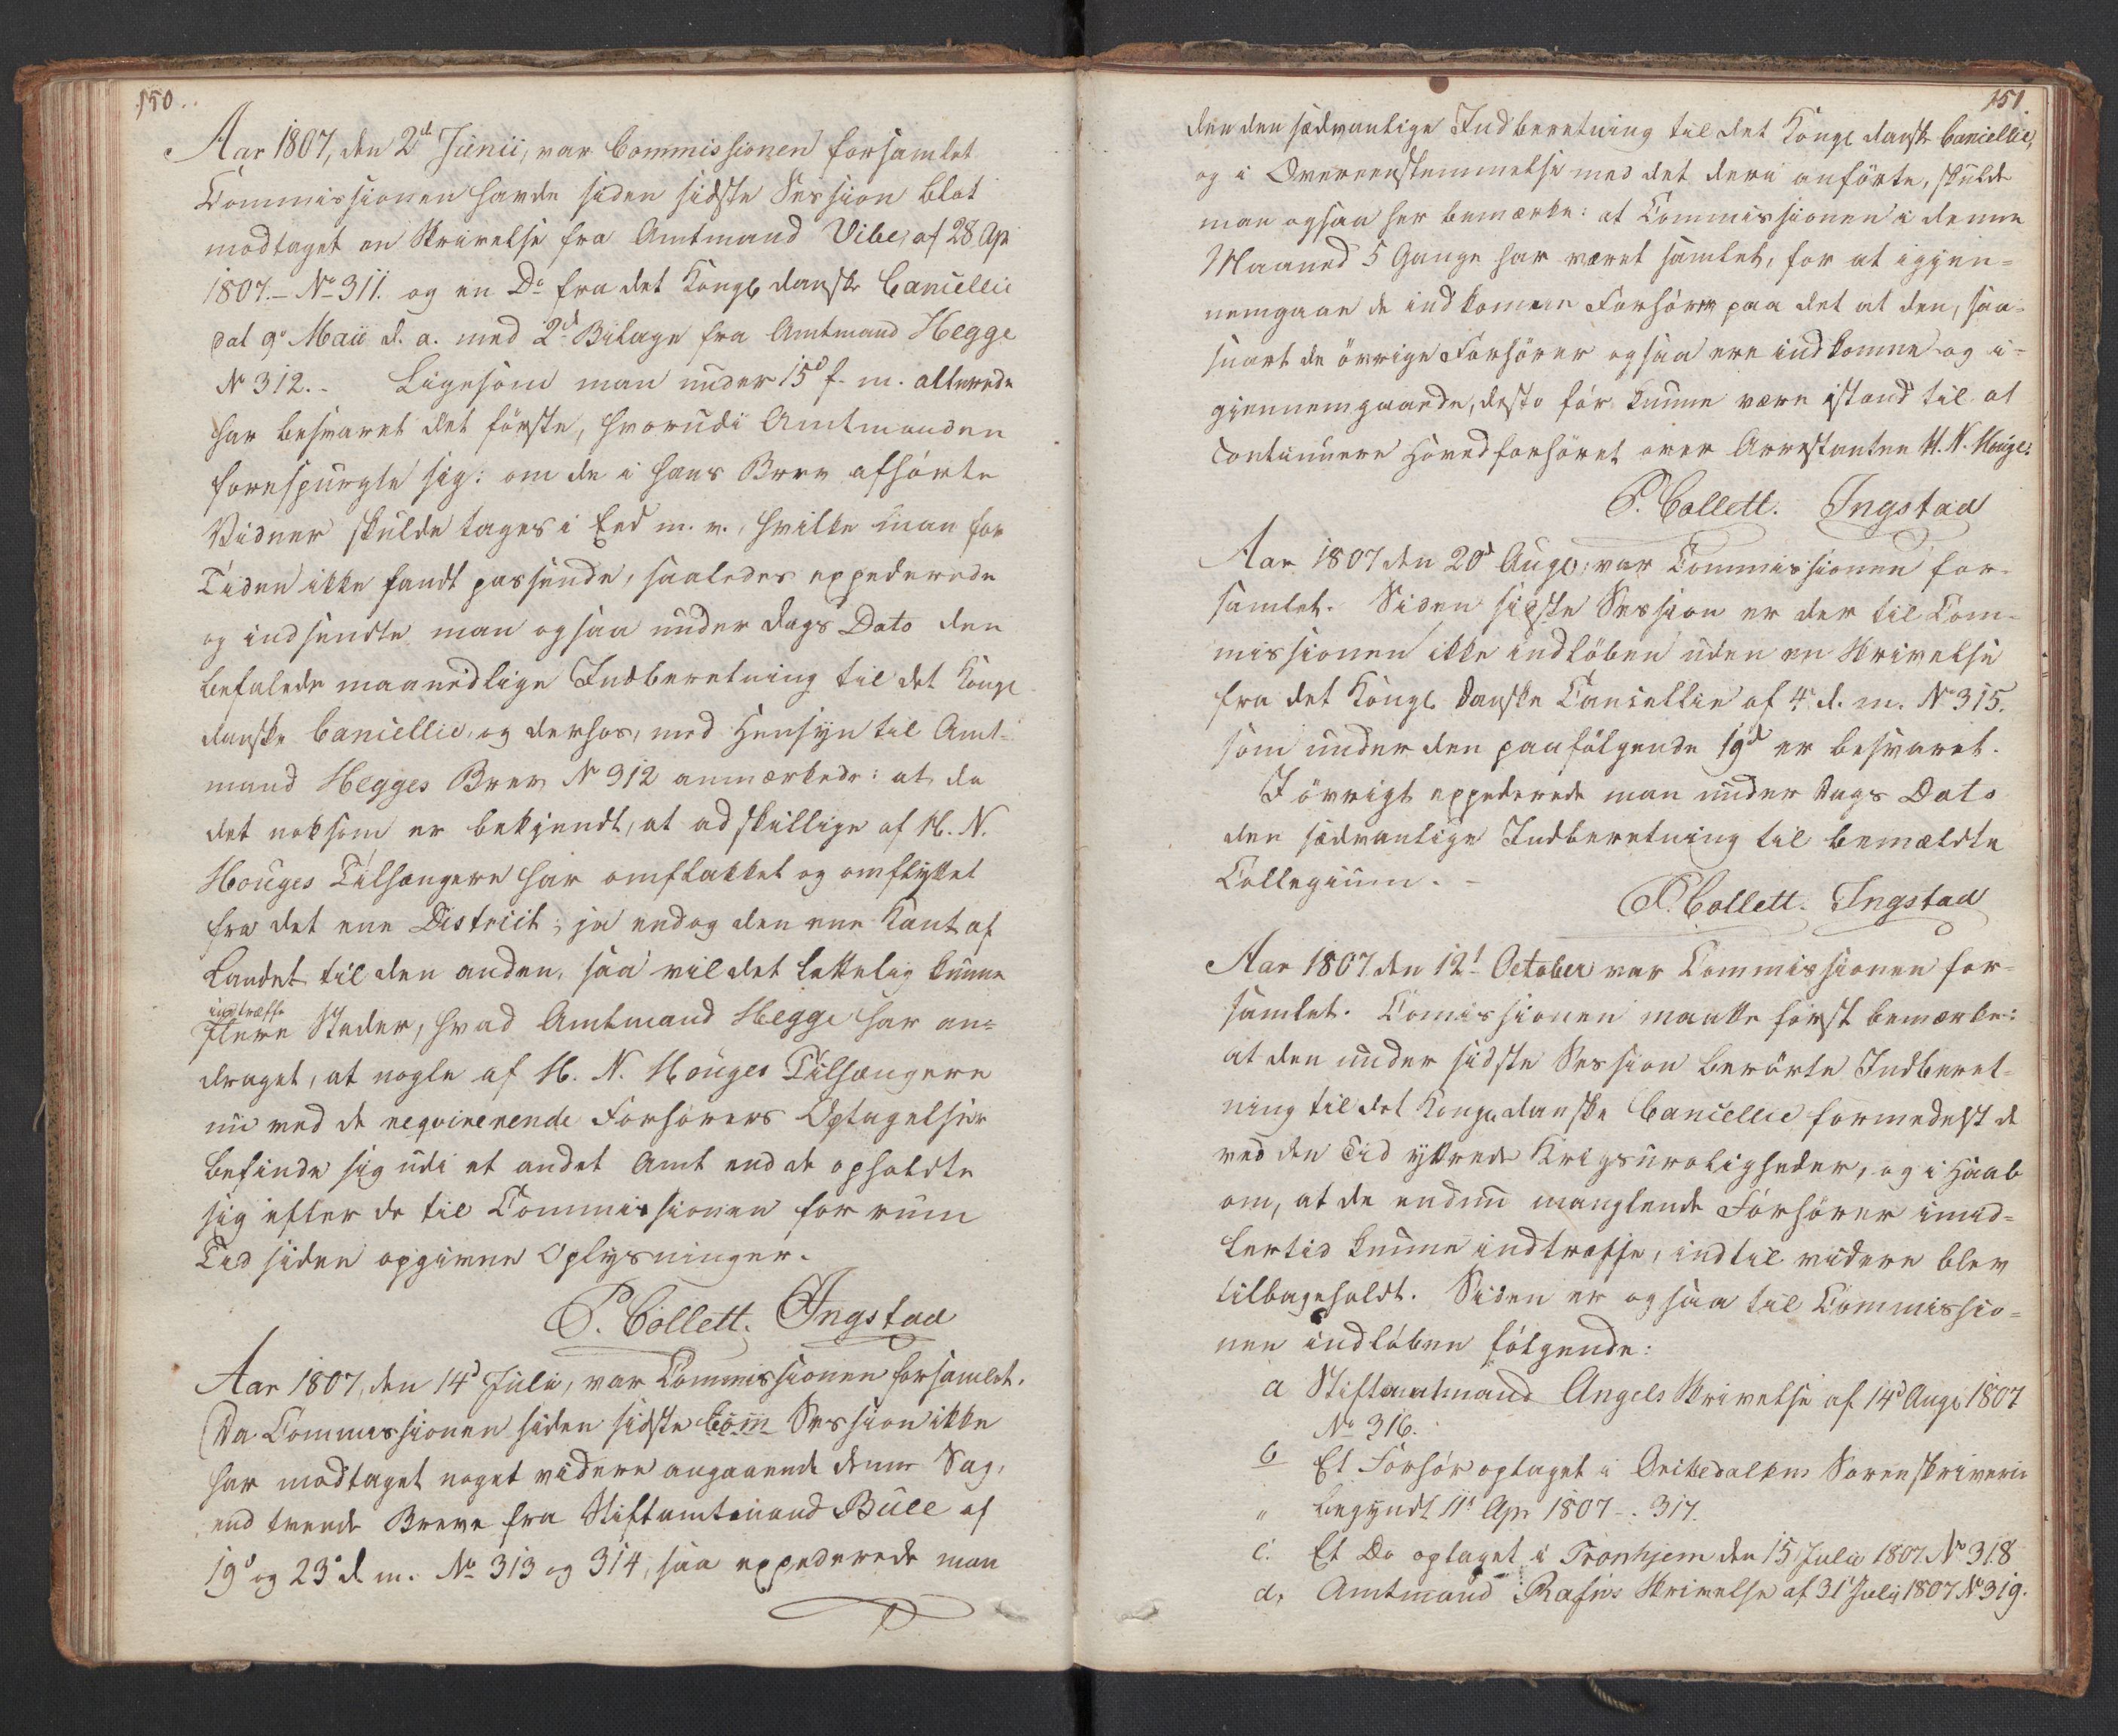 150.
Aar 1807, den 2d Junii, var Commissionen forsamlet
Commissionen havde siden sidste Session blot
modtaget en Skrivelse fra Amtmand Vibe, af 28 Ap
1807.- No 311. og en Do fra det Kongl danske Cancellie
dat 9d Maii d. a. med 2d Bilage fra Amtmand Hegge
No 312.- Ligesom man under 15d f. m. allerede
har besvaret det förste, hvorudi Amtmanden
forespurgte sig: om de i hans Brev afhörte
Vidner skulde tages i Eed m. v., hvilke man for
Tiden ikke fandt passende, saaledes expederede
og indsendte man ogsaa under Dags Dato den
befalede maanedlige Indberetning til det Kongl
danske Cancellie, og derhos, med Hensyn til Amt-
mand Hegges Brev No 312 anmærkede: at da
det noksom er bekjendt, at adskillige af H. N.
Houges Tilhængere har omflakket og omflyttet
fra det ene District, ja endog den ene Kant af
Landet til den anden, saa vil det lettelig kunne
indtræffe
flere Steder, hvad Amtmand Hegge har an-
draget, at nogle af H. N. Houges Tilhængere
nu ved de reqvirerende Forhörers Optagelser
befinde sig udi et andet Amt end de opholdte
sig efter de til Commissionen for rum
Tid siden opgivne Oplysninger.
P. Collett. Ingstad
Aar 1807, den 14d Julii, var Commissionen forsamlet.
Da Commissionen siden sidste Com Session ikke
har modtaget noget videre angaaende denne Sag,
end tvende Breve fra Stiftamtmand Bull af
19d og 23d d. m. No 313 og 314, saa expederede man
151.
den den sædvanlige Indberetning til det Kongl danske Cancellie,
og i Overeenstemmelse med det deri anförte, skulde
man ogsaa her bemærke: at Commissionen i denne
Maaned 5 Gange har været samlet, for at igjen-
nemgaae de indkomne Forhörer paa det at den, saa-
snart de övrige Forhörer ogsaa ere indkomne og i-
giennemgaaede, desto för kunne være istand til at
continuere Hovedforhöret over Arrestanten H. N. Houge.
P. Collett. Ingstad
Aar 1807 den 20d Augl, var Commissionen for-
samlet. Siden sidste Session er der til Com-
missionen ikke indlöben uden en Skrivelse
fra det Kongl Danske Cancellie af 4d d. m. No 315.
som under den paafölgende 19d er besvaret.
Iövrigt expederede man under Dags Dato
den sædvanlige Indberetning til bemældte
Collegium. -
P. Collett. Ingstad
Aar 1807 den 12t October var Commissionen for-
samlet. Comissionen maatte först bemærke:
at den under sidste Session berörte Indberet-
ning til det Kongl danske Cancellie formedelst de
ved den Tid yttrede Krigsuroligheder, og i Haab
om, at de endnu manglende Forhörer imid-
lertid kunne indtræffe, indtil videre blev
tilbageholdt. Siden er ogsaa til Commissio-
nen indlöben fölgende:
a Stiftamtmand Angels Skrivelse af 14d Augl 1807
No 316.
b Et Forhör optaget i Orckedalens Sorenskriverie
" begyndt 11t Apr 1807 -. 317.
c. Et Do optaget i Tronhjem den 15 Julii 1807. No 318
d, Amtmand Rafns Skrivelse af 31 Julii 1807 No 319.